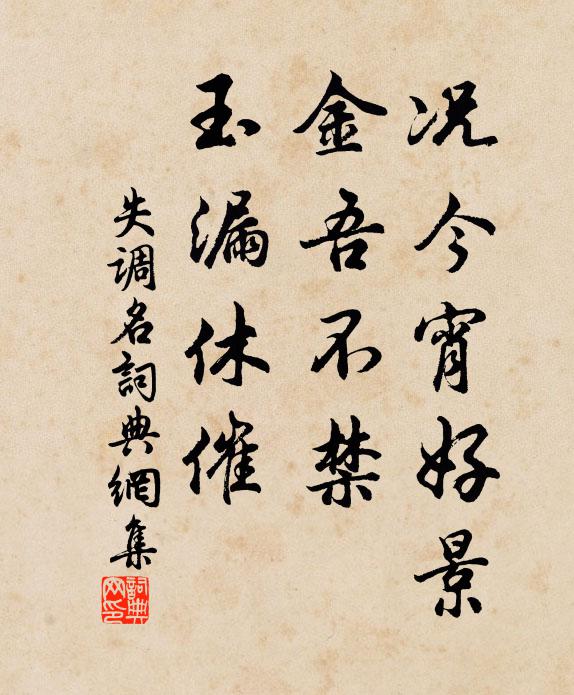 况今宵好景
金吾不禁
玉漏休催
失调名詞典網集
詞典網印